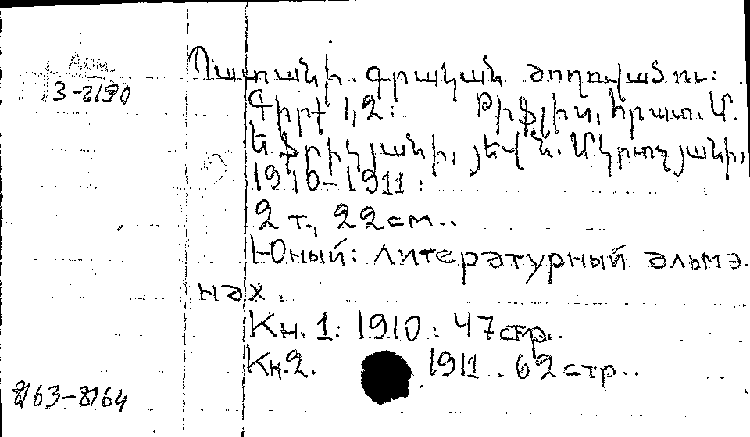 Арм.
3-2190
Պատանի. գրական ժողովածու:
Գիրք 1,2: Թիֆլիս, հրատ. Մ.
և Ն. Մկրտչյանի,
1910-1911:
2 т., 22 см..
Юный: литературный альма-
нах.
Кн. 1. 1910. 47 стр..
Кн. 2. 1911. 62 стр..
8163-8164